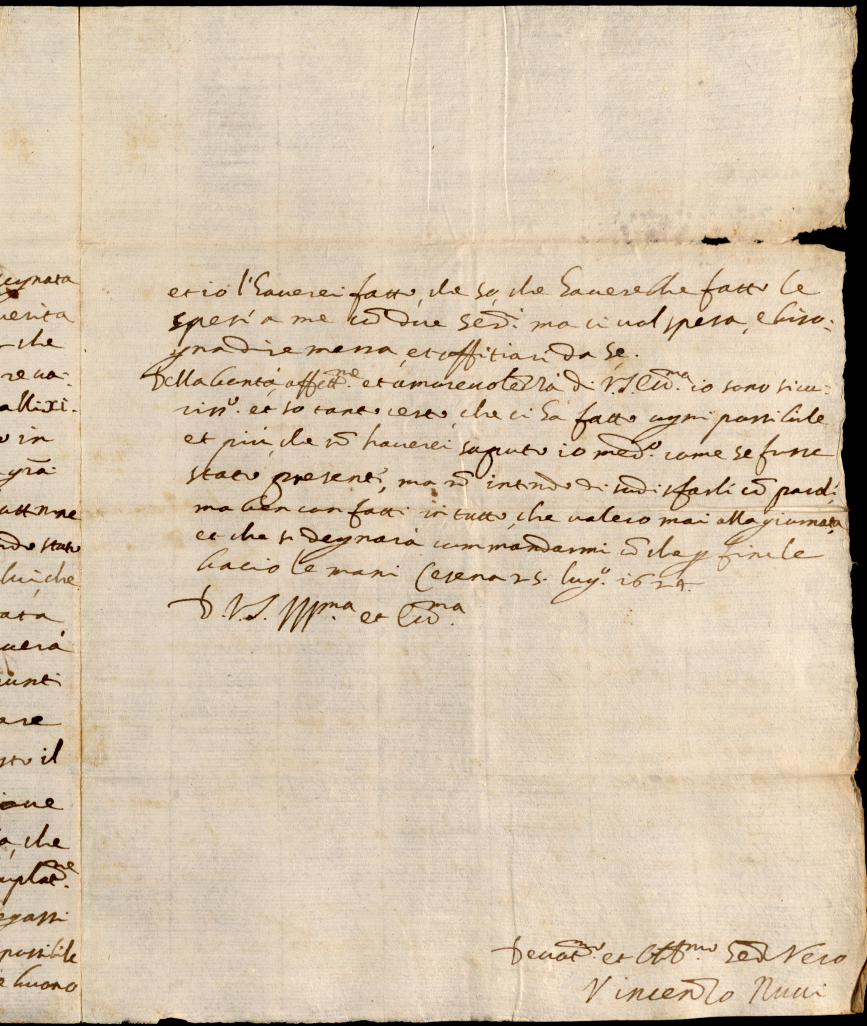 egnata
verita
che
re ua:
allixi.
in
gra:
attione
ndo stato
lui, che
ata
uerà
iunti
are
sto il
ioue
a, che
egassi
possibile
e buono
et io l'hauerei fatto, che so, che hauerebbe fatto le
spesi a me cõ due ma ci vol spesa, e biso:
gna dire messa, et offitiari da se.
Della bontà, affett.ne et amoreuolezza di V.S. io sono sicu:
riss.o et so tanto certo, che ci ha fatto ogni possibile
et più, che nõ hauerei saputo io med.o come se fusse
stato presenti, ma nõ intendo di sodisfarli cõ parole,
ma ben con fatti in tutto che valero mai alla giornata,
et che si degnarà commandarmi cõ che p fine le
bacio le mani Cesena 25. lug.o 1624.
D. V.S. Ill.ma et
Deuot.mo et Obb.mo Vero
Vincenzo Nuci